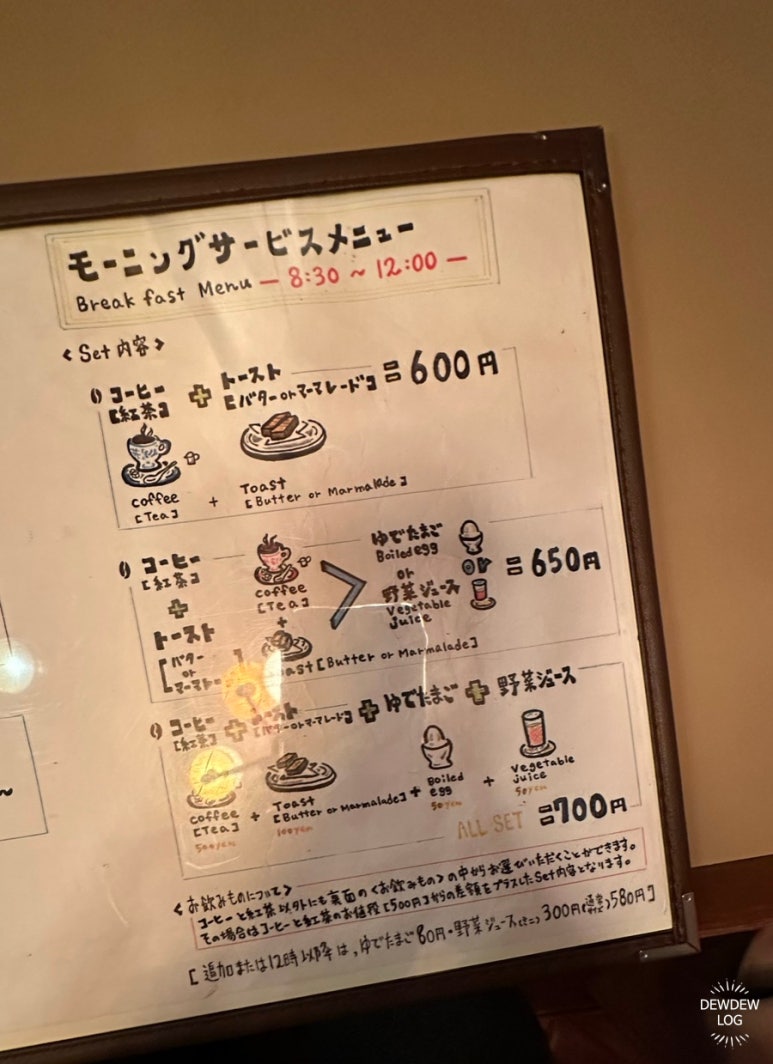 モーニングサービスメニュー
Break fast Menu — 8:30 ~ 12:00 —
< Set 内容 >
コーヒー + トースト = 600円
[紅茶] [バター or マーマレード]
coffee + Toast
[Tea] [Butter or Marmalade]
コーヒー
[紅茶]
+
トースト
[バター
or
coffee
[Tea]
+
[Butter or Marmalade]
ゆでたまご
Boiled egg
or
野菜ジュース
Vegetable
Juice
or
= 650円
コーヒー + トースト + ゆでたまご + 野菜ジュース
[紅茶] [バター or マーマレード]
coffee + Toast + Boiled egg + Vegetable Juice
[Tea] [Butter or Marmalade]
500yen 100yen 50yen 50yen
ALL SET = 700円
<お飲みものについて>
コーヒーと紅茶以外にも裏面の<お飲みもの>の中からお選びいただくことができます。
その場合はコーヒーと紅茶のお値段[500円]からの差額をプラスしたSet内容となります。
[追加または12時以降は、ゆでたまご80円・野菜ジュース(ミニ)300円(通常サイズ)580円]
DEWDEW
LOG